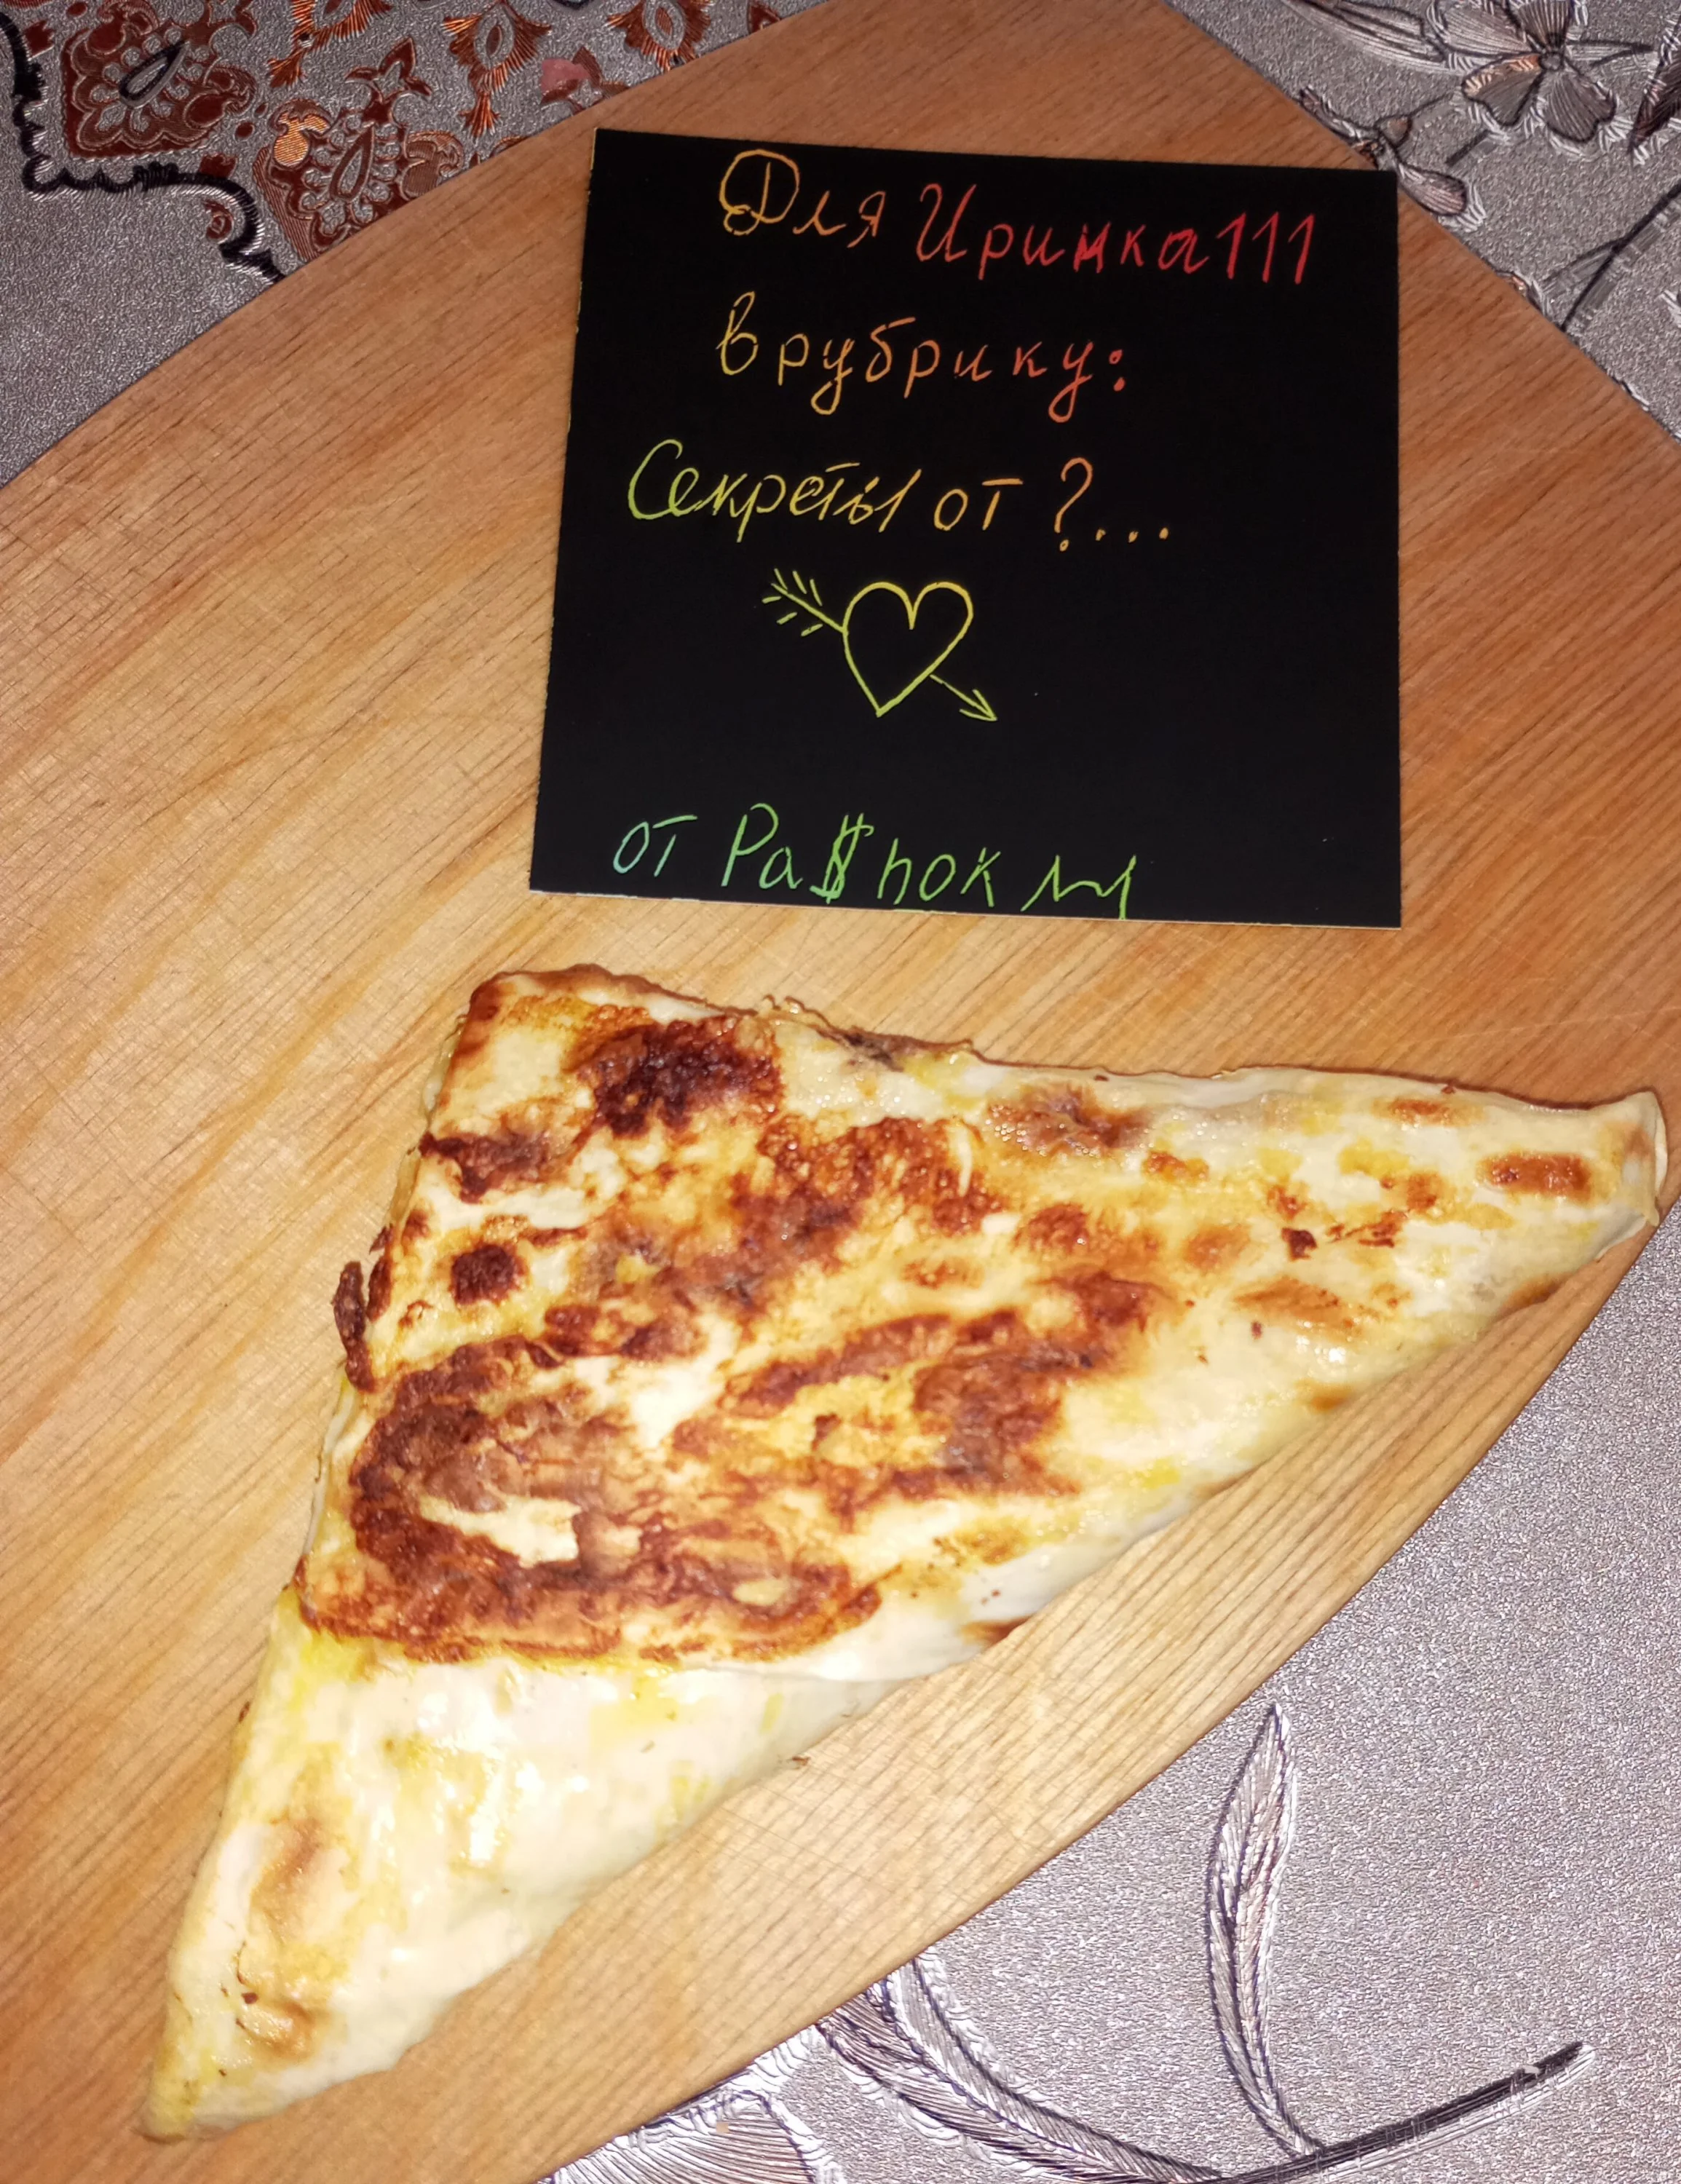 Для Иринка111
в рубрику:
Секреты от ?...
от Ра$hok